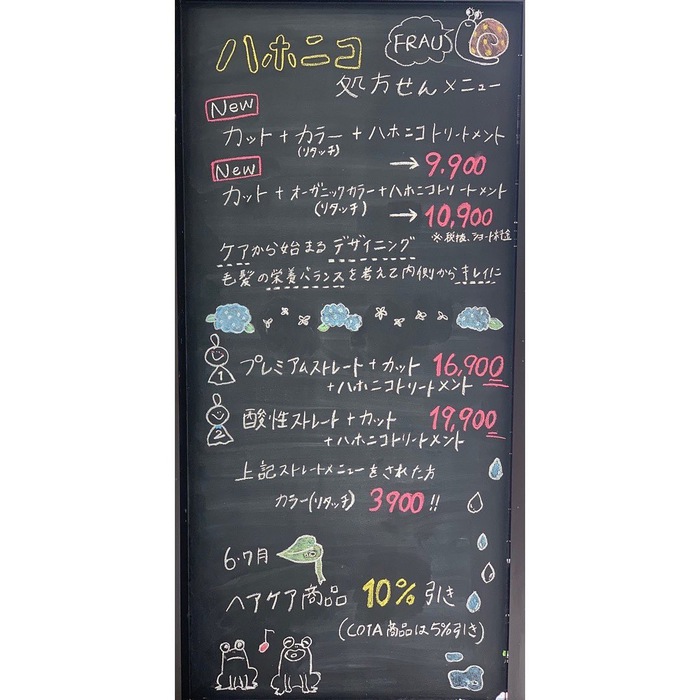 ハホニコ
FRAUS
処方せんメニュー
New
カット+カラー+ハホニコトリートメント
(リタッチ)
→9.900
New
カット+オーガニックカラー+ハホニコトリートメント
(リタッチ)
→10,900
※税抜、ショート料金
ケアから始まるデザイニング
毛髪の栄養バランスを考えて内側からキレイに
1 プレミアムストレート+カット 16,900
+ハホニコトリートメント
2 酸性ストレート+カット 19,900
+ハホニコトリートメント
上記ストレートメニューをされた方
カラー(リタッチ) 3900!!
6.7月
ヘアケア商品 10%引き
(COTA商品は5%引き)